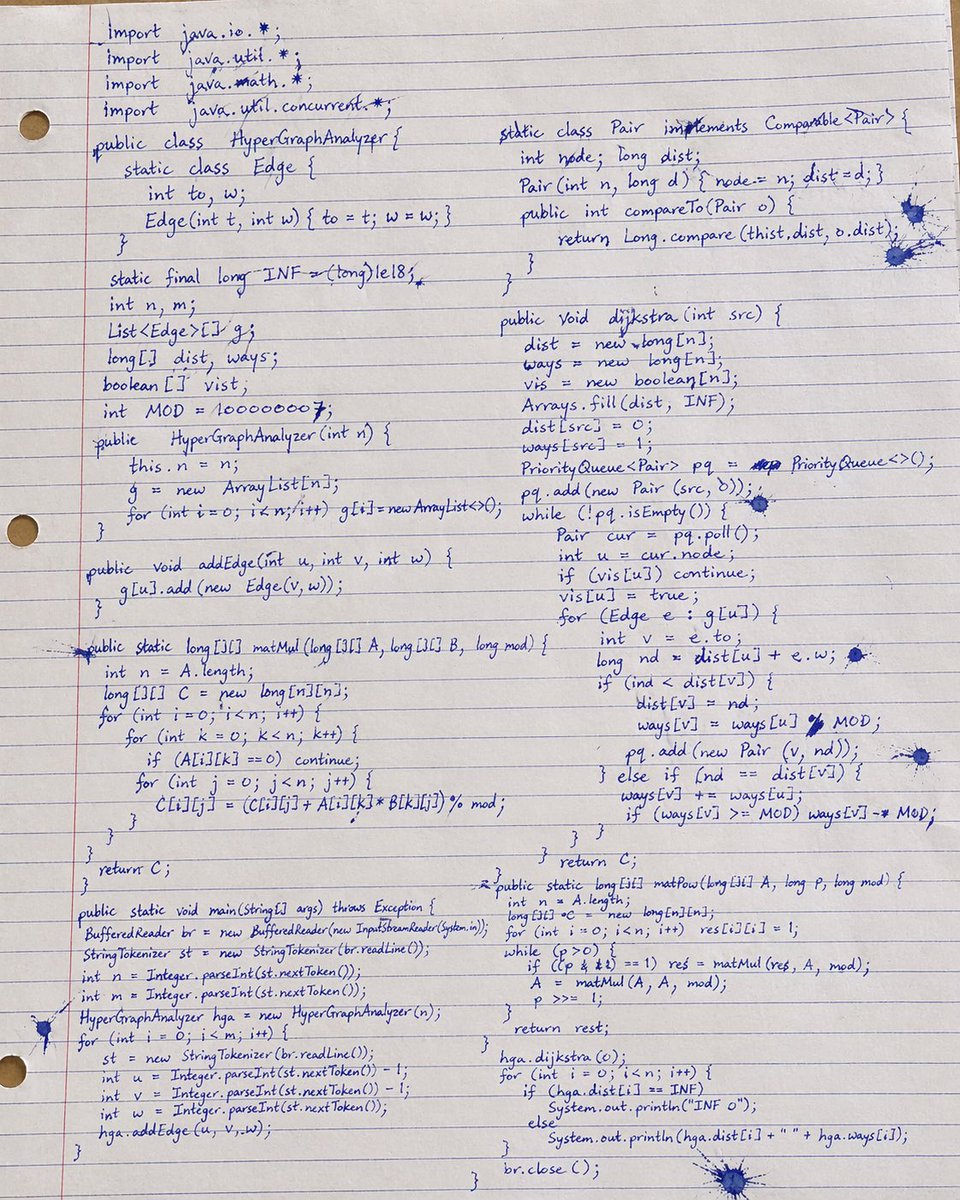 import java.io.*;
import java.util.*;
import java.math.*;
import java.util.concurrent.*;
public class HyperGraphAnalyzer {
static class Edge {
int to, w;
Edge(int t, int w) { to = t; w = w; }
}
static final long INF = (long)1e18;
int n, m;
List<Edge>[] g;
long[] dist, ways;
boolean[] vist;
int MOD = 100000007;
public HyperGraphAnalyzer(int n) {
this.n = n;
g = new ArrayList[n];
for (int i=0; i<n; i++) g[i]=new ArrayList<>();
}
public void addEdge(int u, int v, int w) {
g[u].add(new Edge(v,w));
}
public static long[][] matMul(long[][] A, long[][] B, long mod) {
int n = A.length;
long[][] C = new long[n][n];
for (int i=0; i<n; i++) {
for (int k = 0; k<n; k++) {
if (A[i][k] ==0) continue;
for (int j = 0; j<n; j++) {
C[i][j] = (C[i][j] + A[i][k]* B[k][j]) % mod;
}
}
}
return C;
}
public static void main(String[] args) throws Exception {
BufferedReader br = new BufferedReader(new InputStreamReader(System.in));
StringTokenizer st = new StringTokenizer(br.readLine());
int n = Integer.parseInt(st.nextToken());
int m = Integer.parseInt(st.nextToken());
HyperGraphAnalyzer hga = new HyperGraphAnalyzer(n);
for (int i = 0; i<m; i++) {
st = new StringTokenizer(br.readLine());
int u = Integer.parseInt(st.nextToken()) - 1;
int v = Integer.parseInt(st.nextToken()) - 1;
int w = Integer.parseInt(st.nextToken());
hga.addEdge(u, v, w);
}
static class Pair implements Comparable<Pair> {
int node; long dist;
Pair(int n, long d) { node = n; dist = d; }
public int compareTo(Pair o) {
return Long.compare (thist.dist, o.dist);
}
}
public void dijkstra (int src) {
dist = new long[n];
ways = new long[n];
vis = new boolean[n];
Arrays.fill(dist, INF);
dist[src] = 0;
ways[src] = 1;
PriorityQueue<Pair> pq = PriorityQueue<>();
pq.add(new Pair (src, 0));
while (!pq.isEmpty()) {
Pair cur = pq.poll();
int u = cur.node;
if (vis[u]) continue;
vis[u] = true;
for (Edge e : g[u]) {
int v = e.to;
long nd = dist[u] + e.w;
if (ind < dist[v]) {
dist[v] = nd;
ways[v] = ways[u] % MOD;
pq.add(new Pair (v, nd));
} else if (nd == dist[v]) {
ways[v] += ways[u];
if (ways[v] >= MOD) ways[v] -= MOD;
} }
} return C;
}
public static long[][] matPow(long[][] A, long p, long mod) {
int n = A.length;
long[][] C = new long[n][n];
for (int i=0; i<n; i++) res[i][i] = 1;
while (p>0) {
if ((p & ) == 1) res = matMul(res, A, mod);
A = matMul(A, A, mod);
p >>= 1;
}
return rest;
}
hga.dijkstra(0);
for (int i = 0; i<n; i++) {
if (hga.dist[i] == INF)
System.out.println("INF 0");
else
System.out.println(hga.dist[i] + " " + hga.ways[i]);
}
br.close();
}